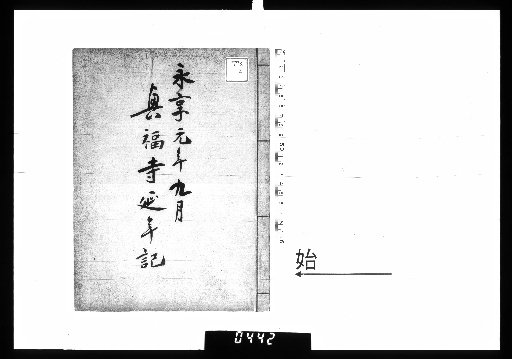 永享元年九月
真福寺延年記
始
0442